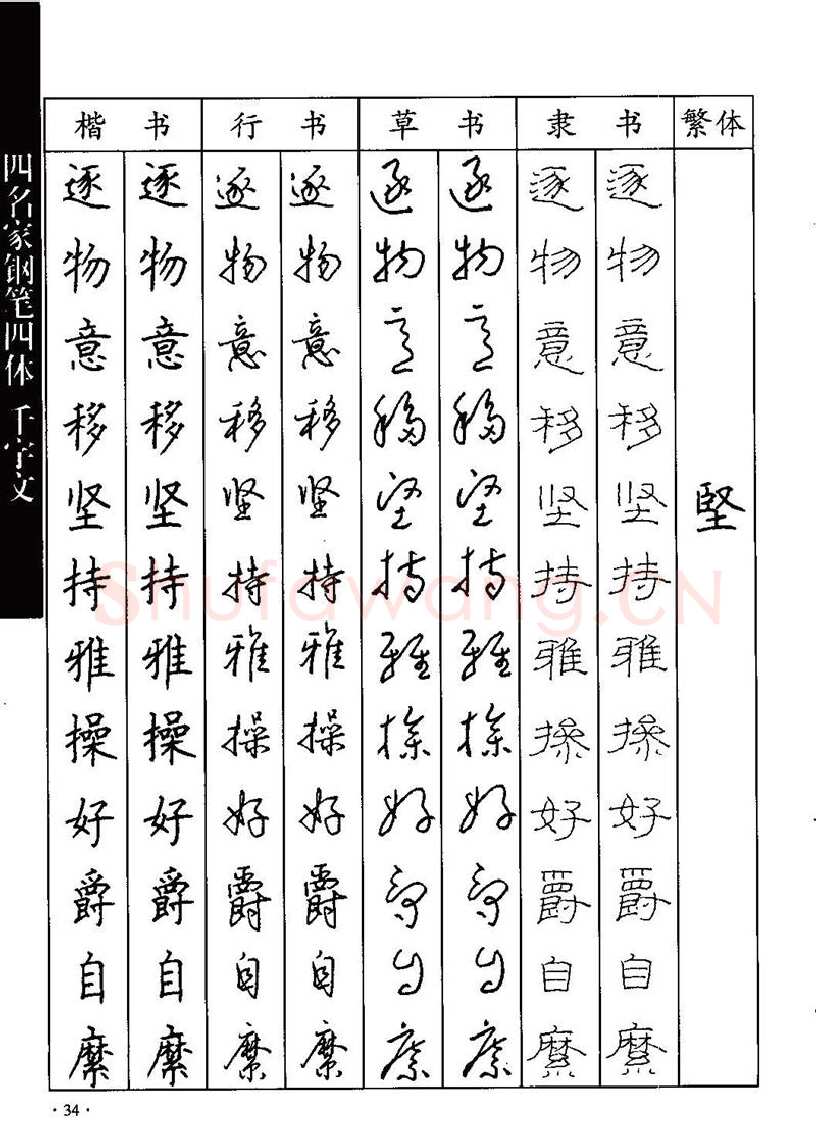 四名家钢笔四体 千字文
楷 书 行 书 草 书 隶 书 繁体
逐 逐 逐 逐 逐 逐 逐 逐
物 物 物 物 物 物 物 物
意 意 意 意 意 意 意 意
移 移 移 移 移 移 移 移
坚 坚 坚 坚 坚 坚 坚 坚 堅
持 持 持 持 持 持 持 持
雅 雅 雅 雅 雅 雅 雅 雅
操 操 操 操 操 操 操 操
好 好 好 好 好 好 好 好
爵 爵 爵 爵 爵 爵 爵 爵
自 自 自 自 自 自 自 自
縻 縻 縻 縻 縻 縻 縻 縻
Shufawang.CN
·34·